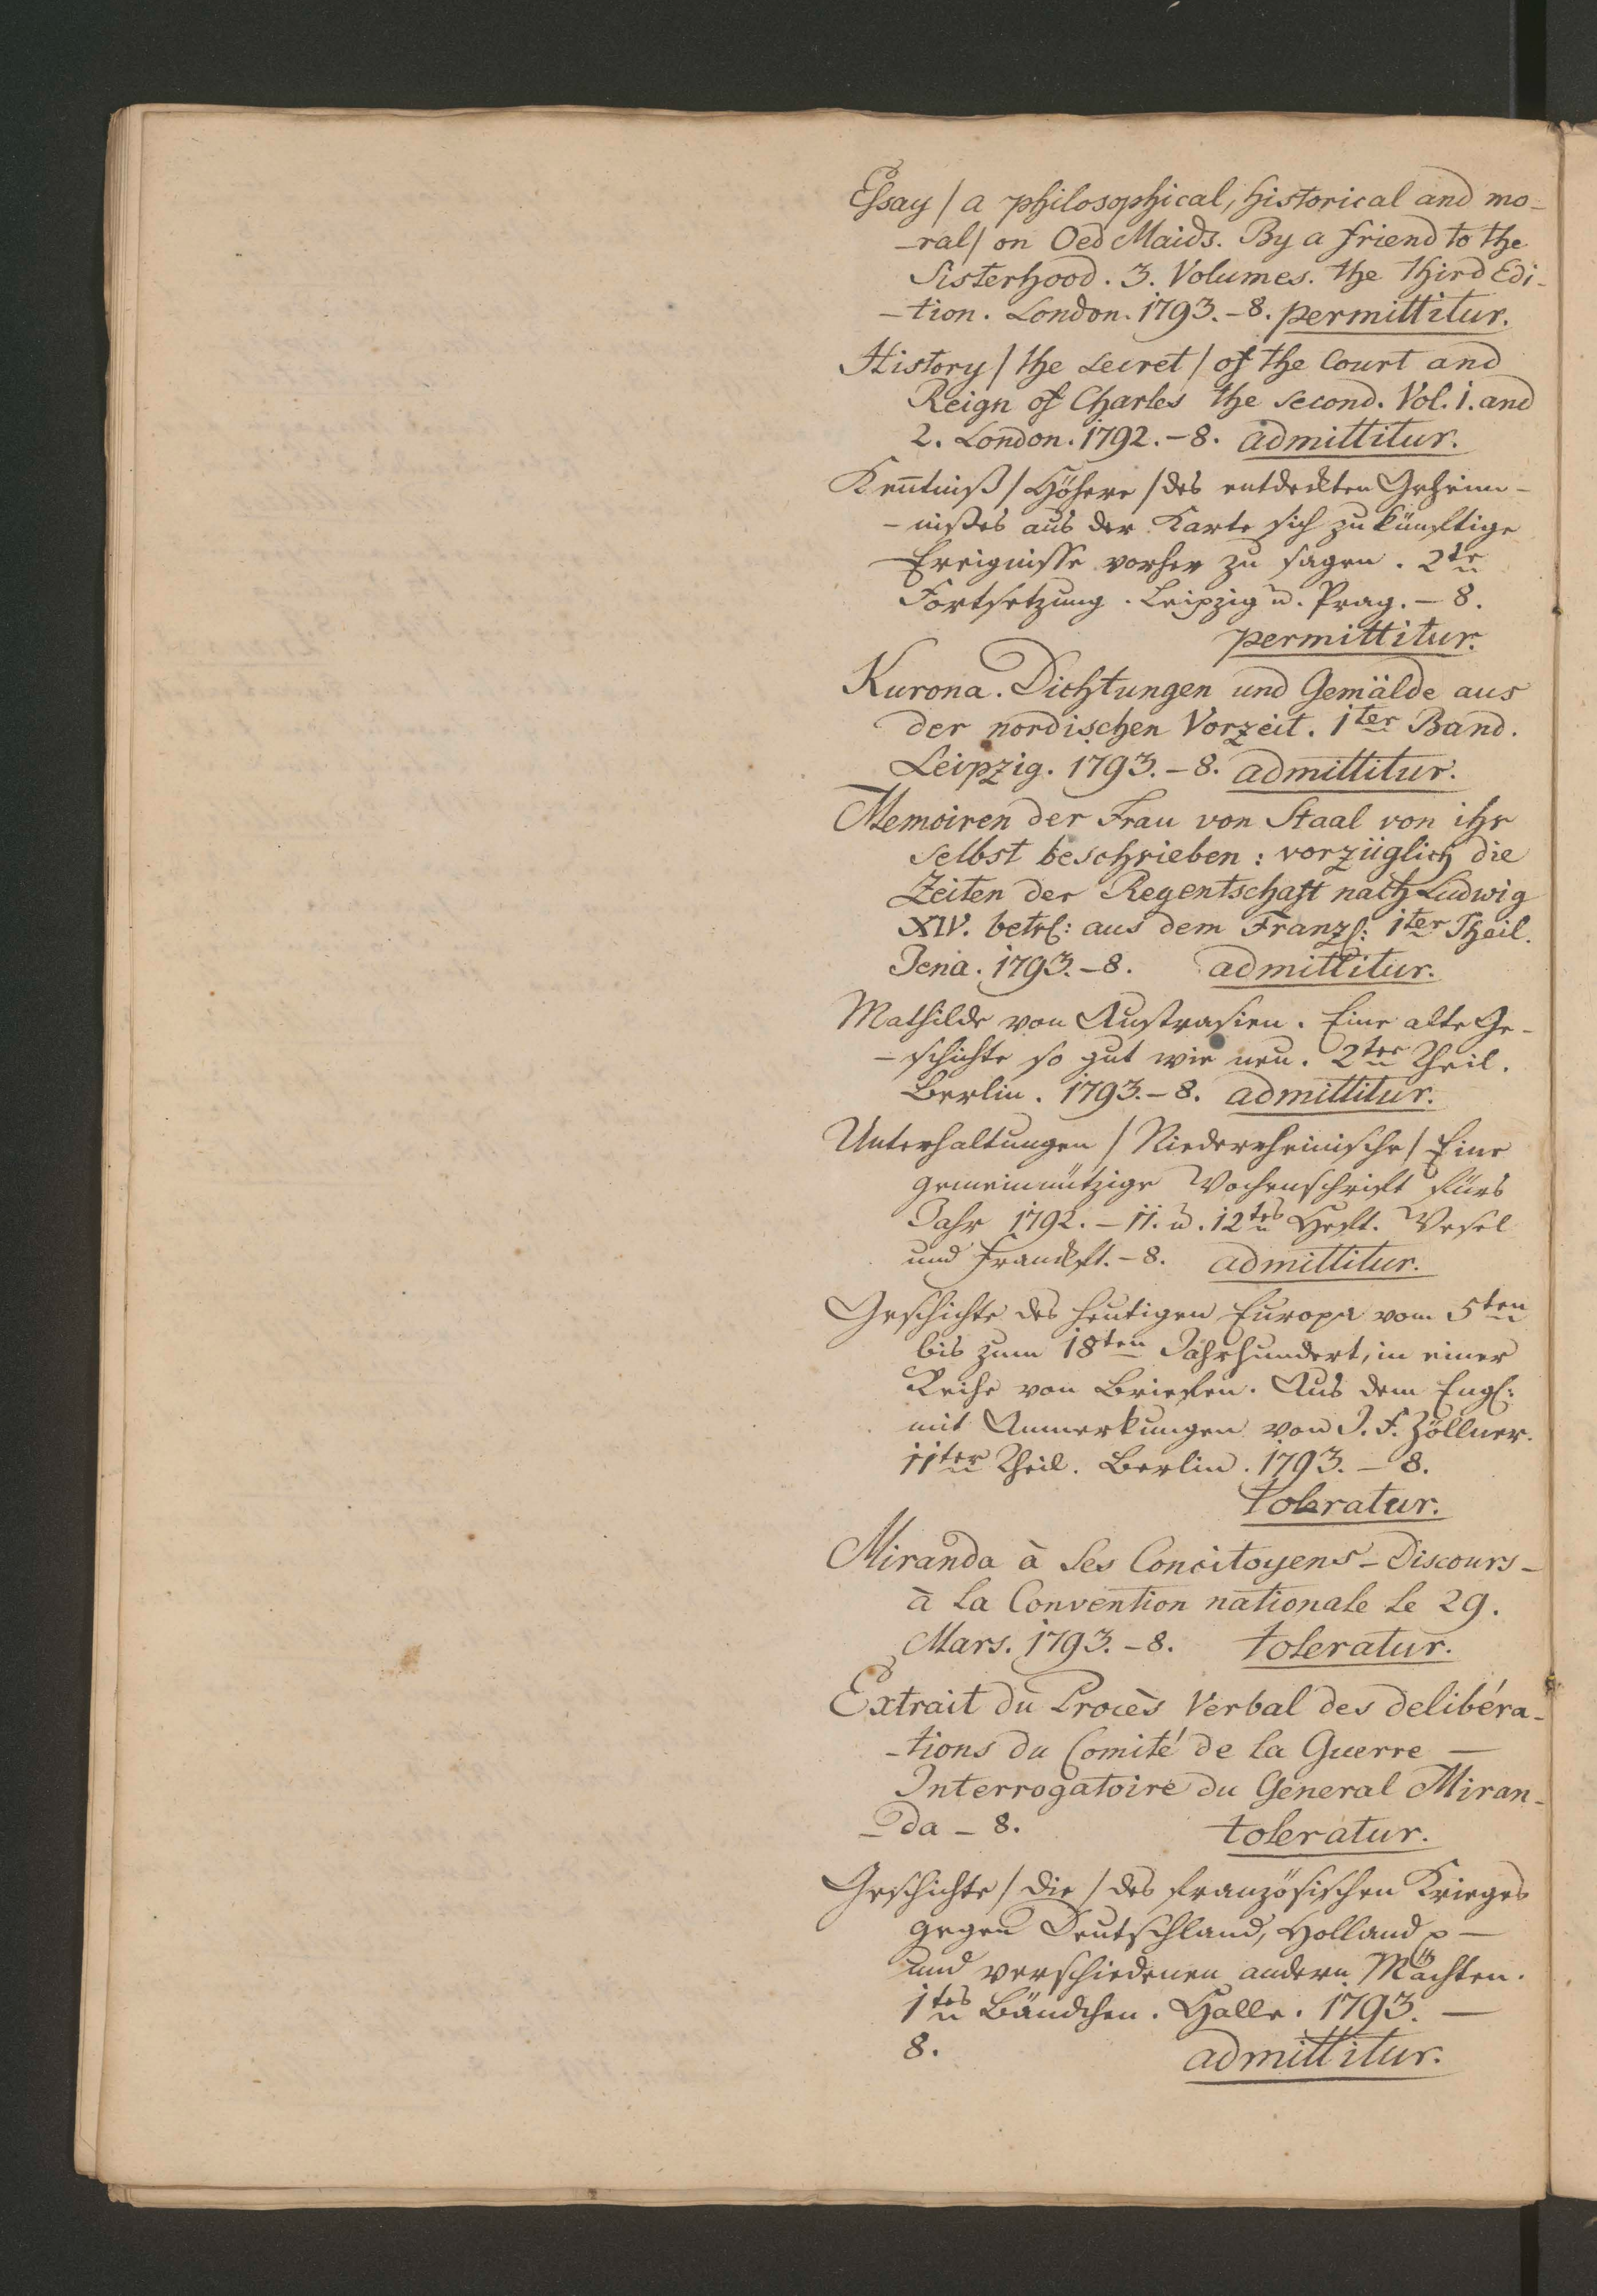 Essay / a philosophical, historical and mo-
-ral / on Oed Maids. By a friend to the
Sisterhood. 3. Volumes. the third Edi-
-tion. London. 1793. - 8. permittitur.
History / the secret / of the Court and
Reign of Charles the second. Vol. 1. and
2. London. 1792. - 8. admittitur.
Ken̄tniß / Höhere / des entdeckten Geheim-
-nißes aus der Karte sich zukünftige
Ereignisse vorher zu sagen. 2te
Fortsetzung. Leipzig u. Prag. - 8.
permittitur.
Kurona. Dichtungen und Gemälde aus
der nordischen Vorzeit. 1ter Band.
Leipzig. 1793. - 8. admittitur.
Memoiren der Frau von Staal von ihr
selbst beschrieben: vorzüglich die
Zeiten der Regentschaft nach Ludwig
XIV. betrf: aus dem Franzs: 1ter Theil.
Jena. 1793. - 8. admittitur.
Mathilde von Austrasien. Eine alte Ge-
-schichte so gut wie neu. 2ter Theil.
Berlin. 1793. - 8. admittitur.
Unterhaltungen / Niederrheinische / Eine
gemeinnützige Wochenschrift fürs
Jahr 1792. - 11. u. 12tes Heft. Wesel
und Franckft. - 8. admittitur.
Geschichte des heutigen Europa vom 5ten
bis zum 18ten Jahrhundert, in einer
Reihe von Briefen. Aus dem Engl:
mit Anmerkungen von J. F. Zöllner.
11ter Theil. Berlin. 1793. - 8.
toleratur.
Miranda à ses Concitoyens - Discours -
à la Convention nationale le 29.
Mars. 1793. - 8. toleratur.
Extrait du Procès Verbal des delibéra-
-tions du Comité de la Guerre —
Interrogatoire du General Miran-
-da - 8. toleratur.
Geschichte / die / des französischen Krieges
gegen Deutschland, Holland —
und verschiedenen andern Mächten.
1tes Bändchen. Halle. 1793. —
8. admittitur.